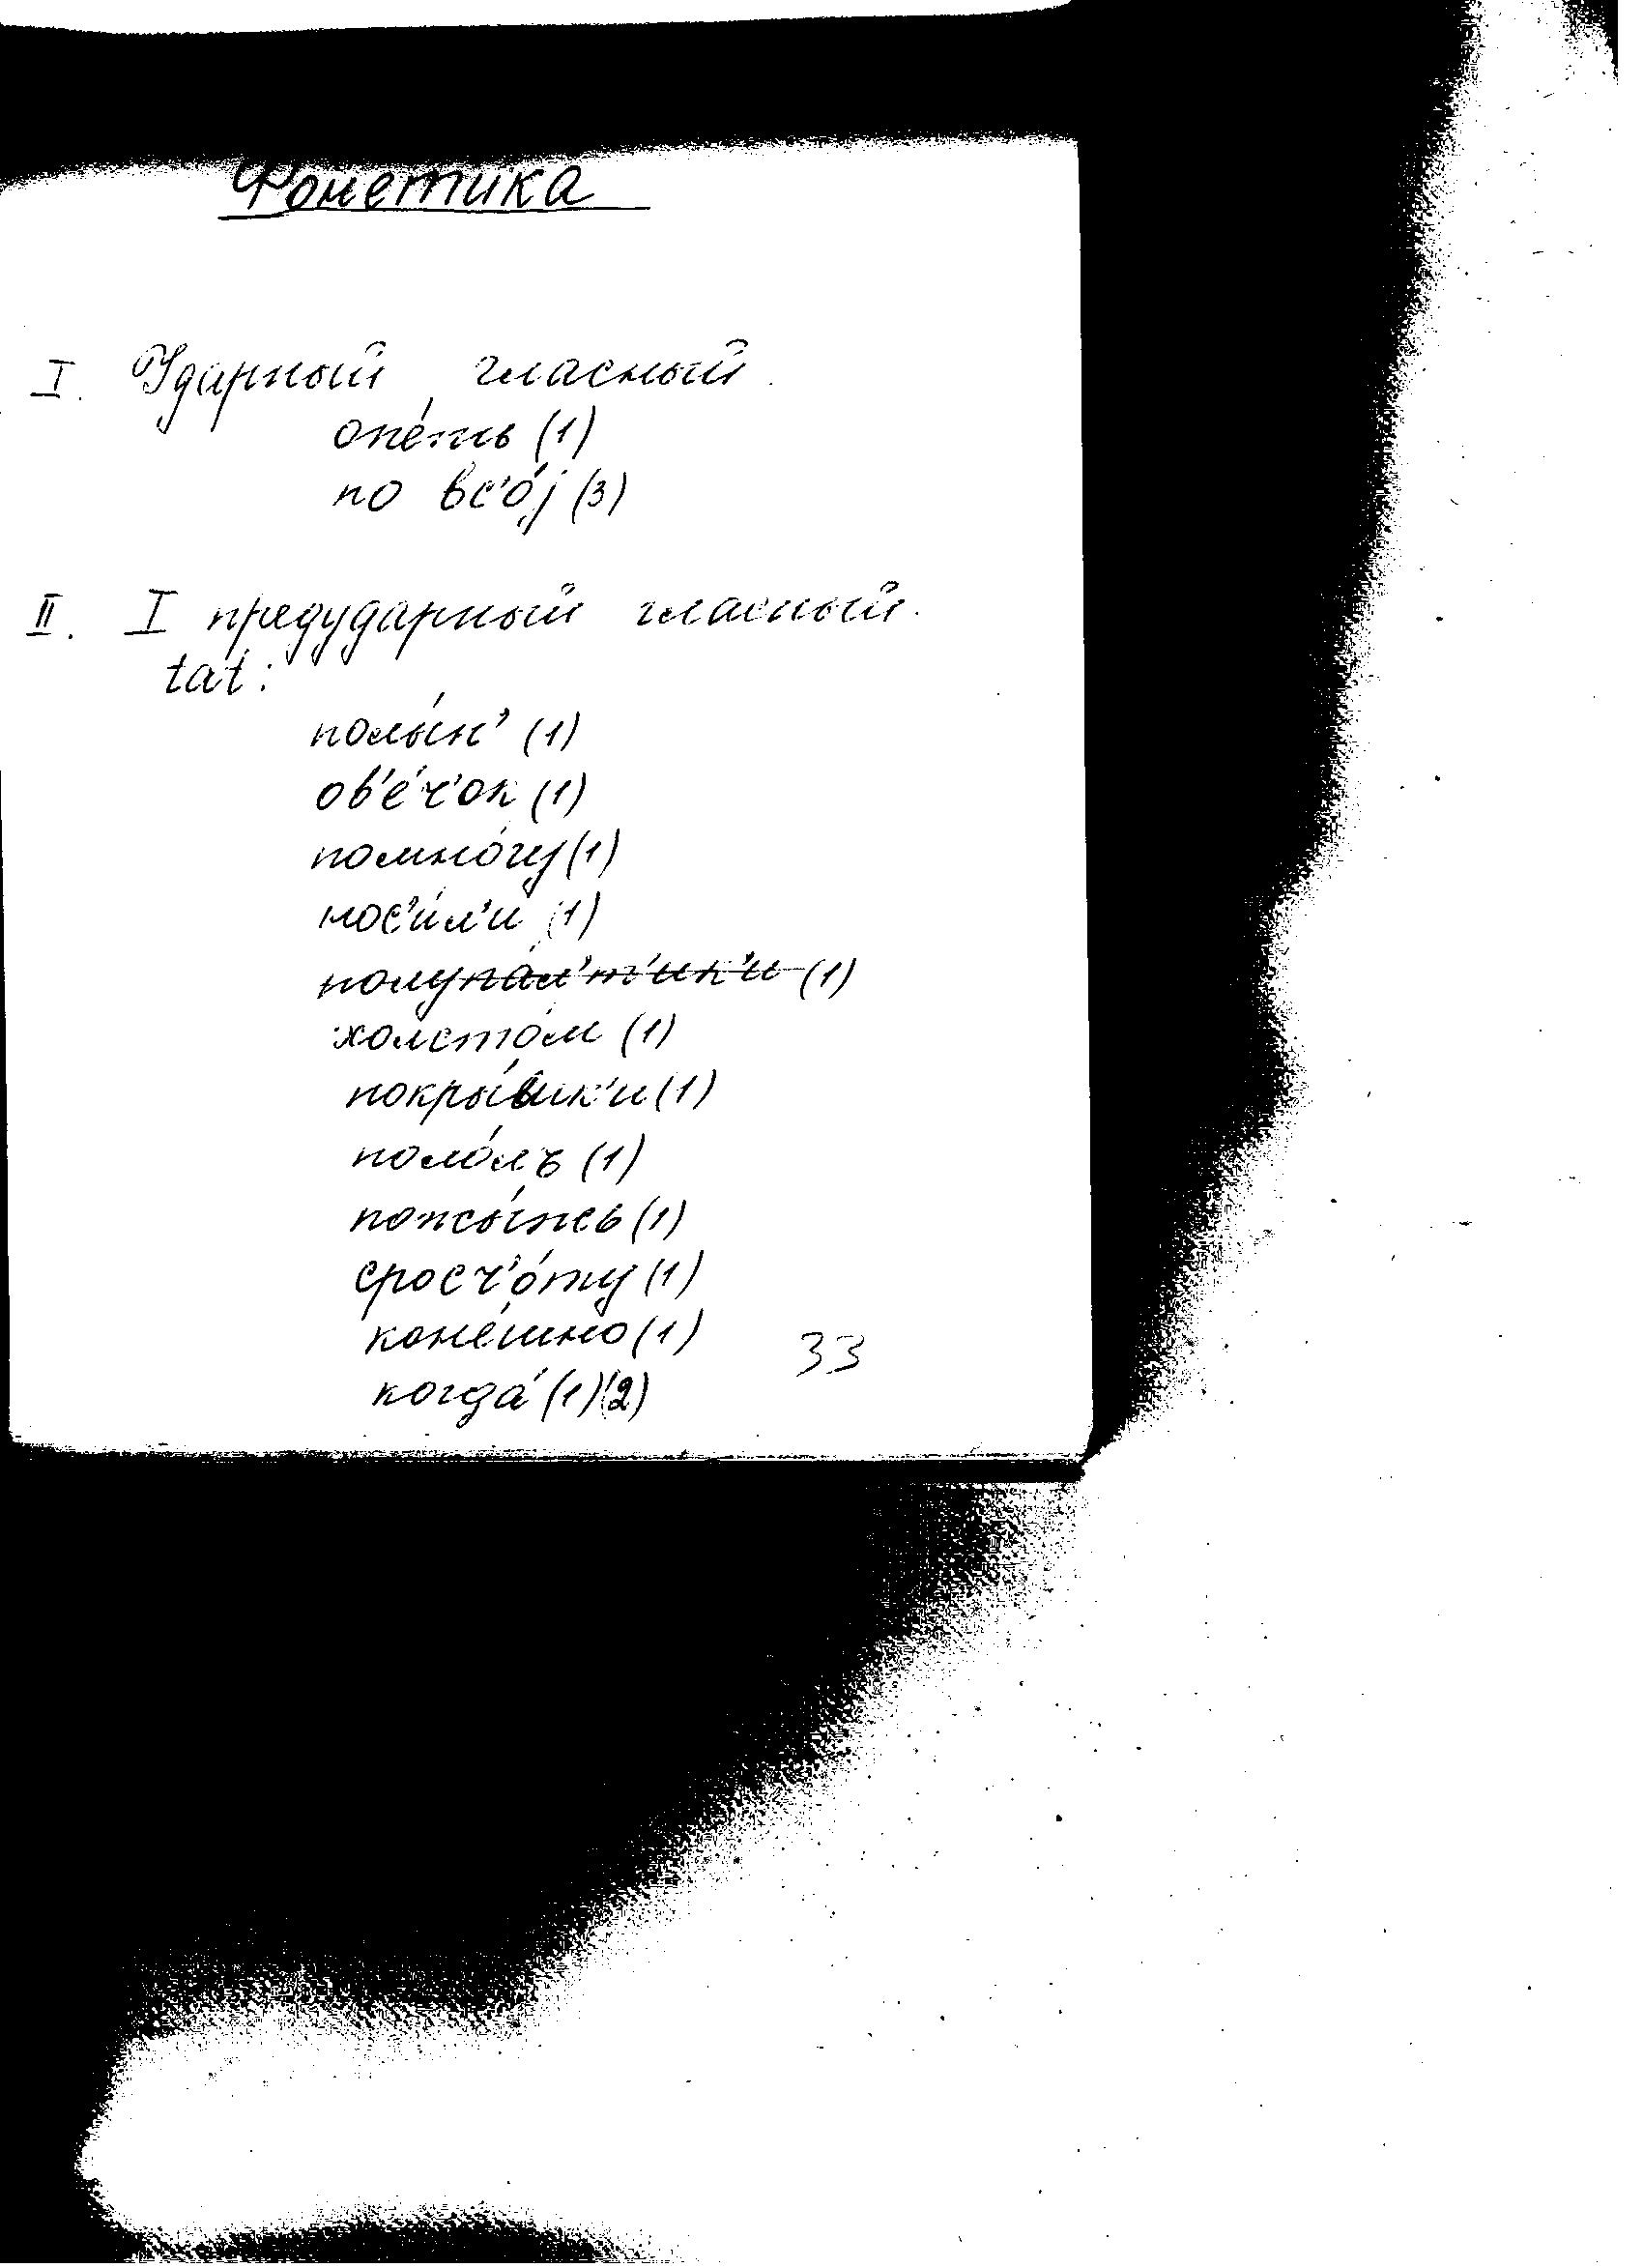 Фонетика
I. Ударный гласный.
опе́ть (1)
по вс'о́j (3)
II. I предударный гласный.
tat:
полы́н' (1)
ов'е́ч'ок (1)
помно́гу (1)
нос'и́л'и (1)
полупа́л'т'ик'и (1)
холсто́м (1)
покры́шк'и (1)
поло́лъ (1)
сросч'о́ту (1)
коне́шно (1)
33
когда́ (1)(2)